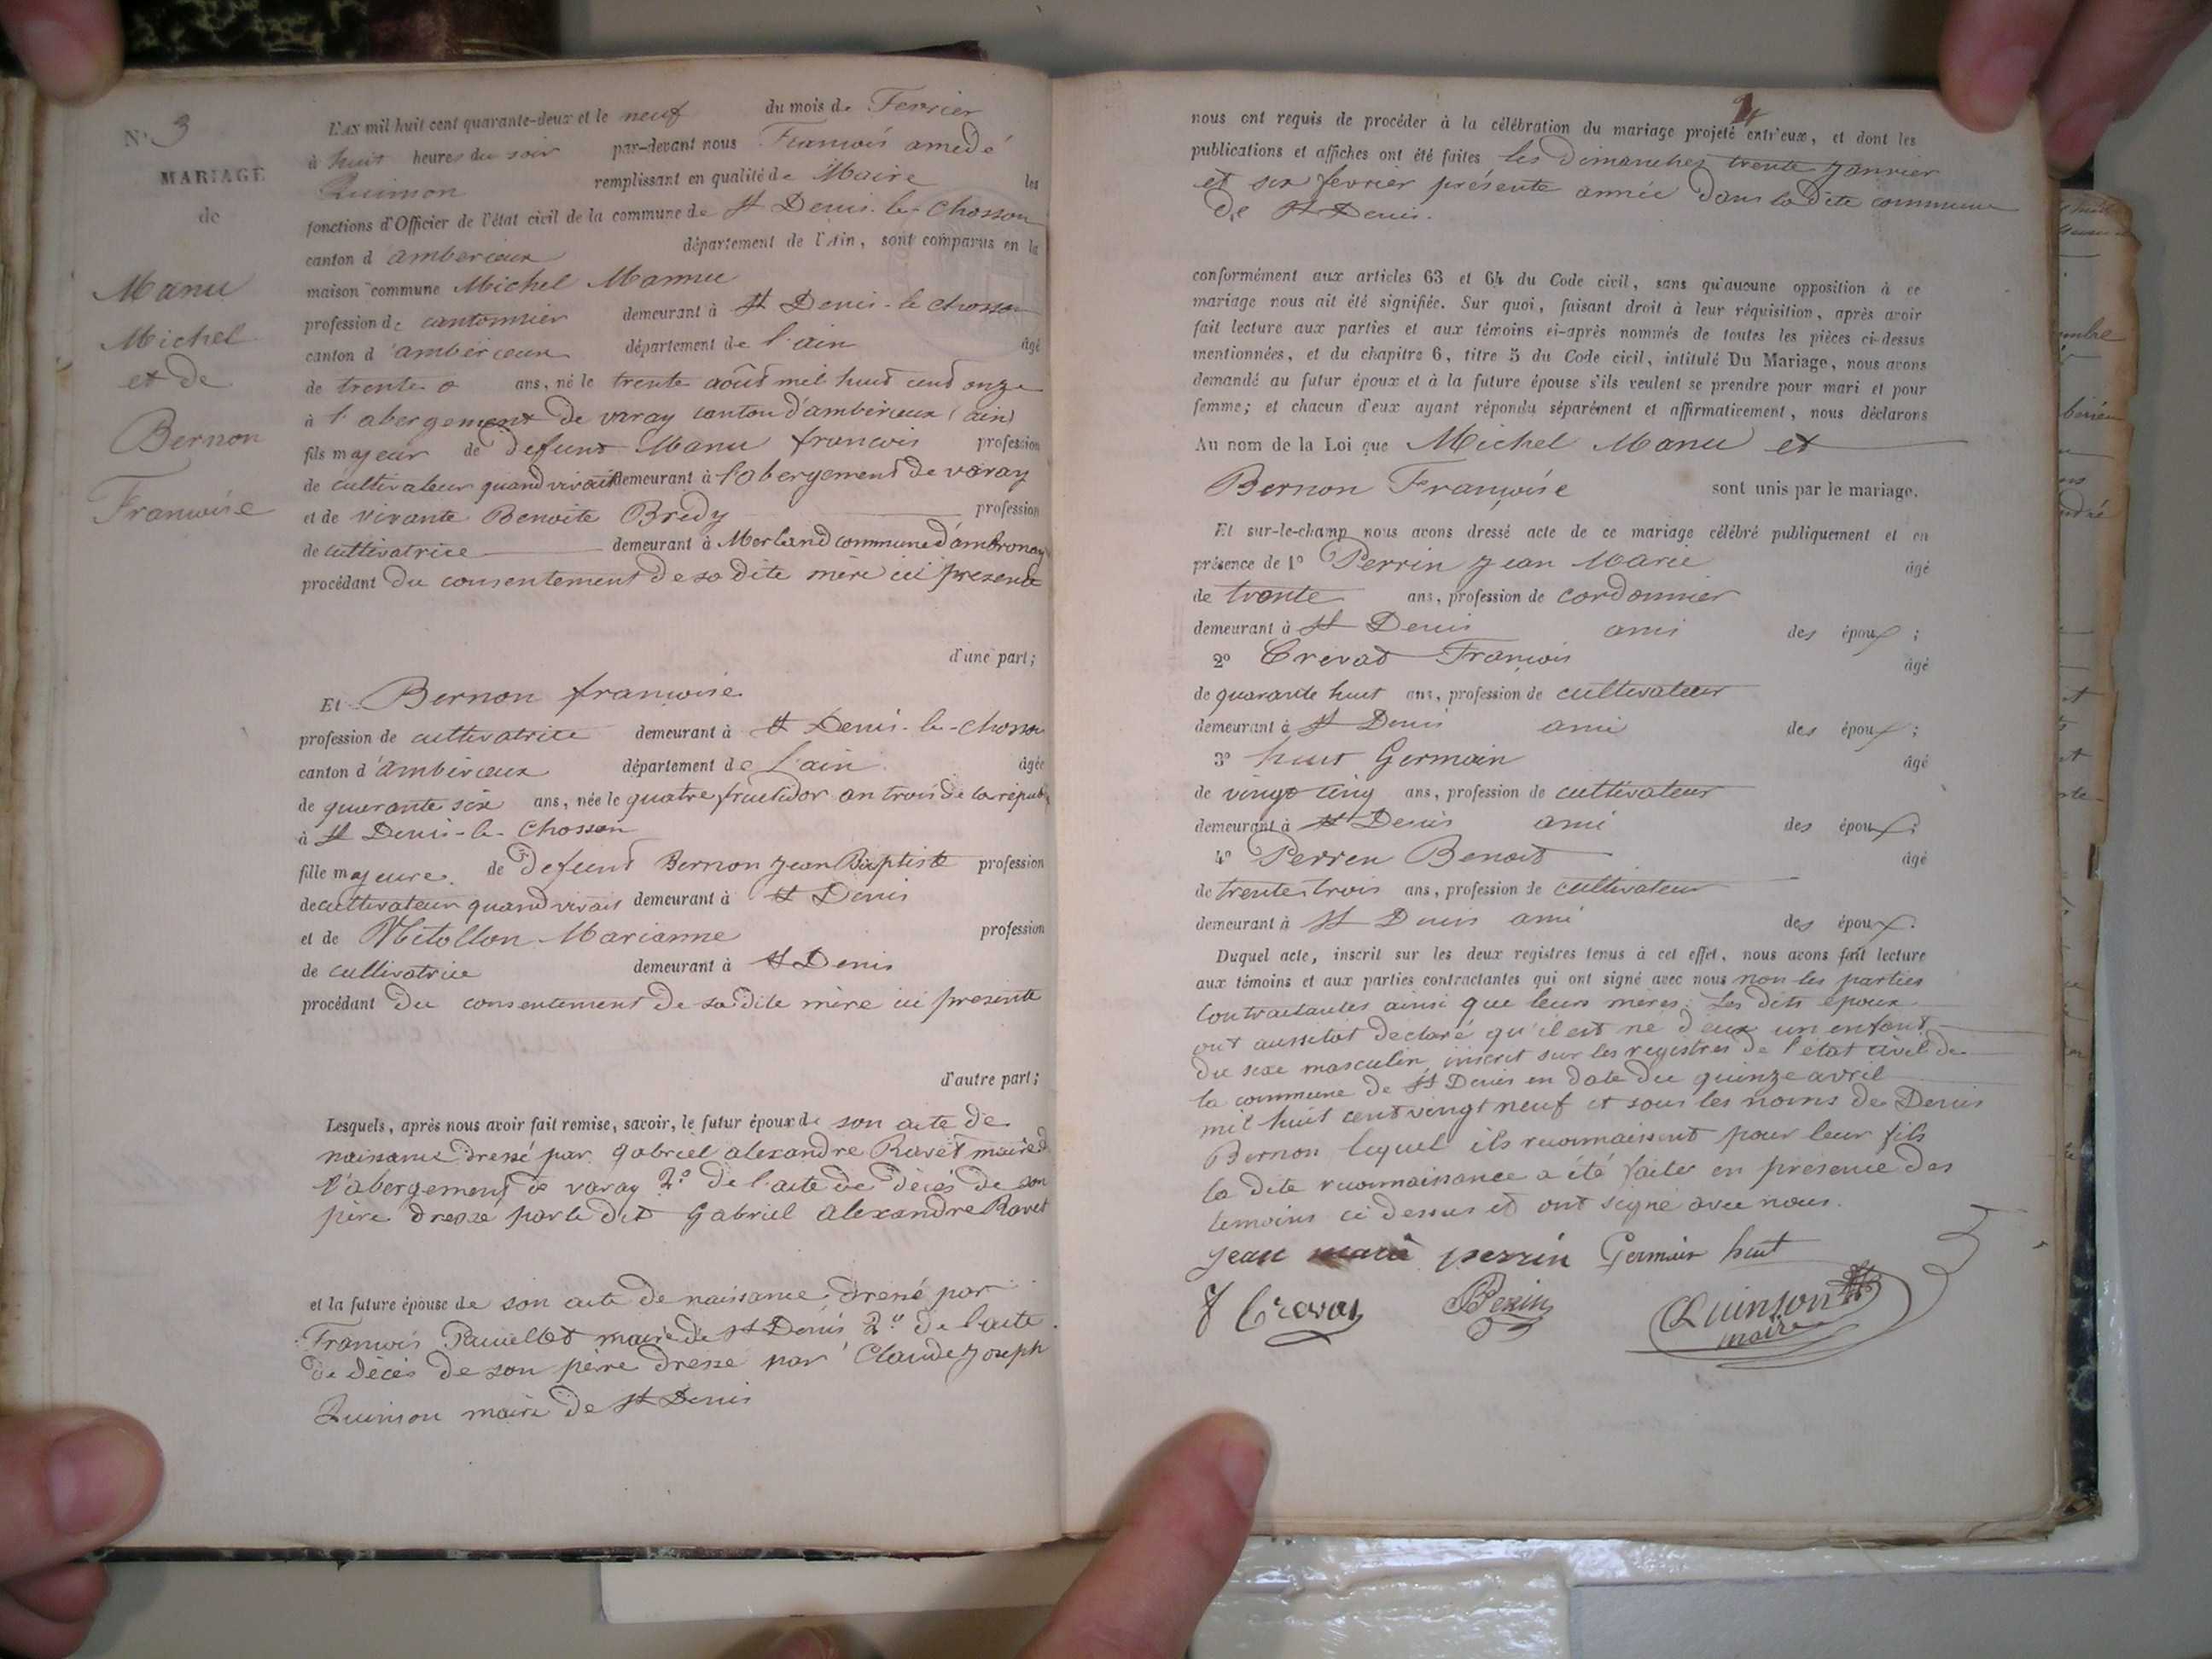 N° 3
MARIAGE
de
Manu
Michel
et de
Bernon
Françoise
L'AN mil huit cent quarante-deux et le neuf du mois de Fevrier
à huit heures du soir par-devant nous François amedé
Quinson remplissant en qualité de Maire les
fonctions d'Officier de l'état civil de la commune de St Denis-le-Chosson
canton d'amberieux département de l'Ain, sont comparus en la
maison commune Michel Mannu
profession de cantonnier demeurant à St Denis-le chosson
canton d'amberieux département de l'ain âgé
de trente ans, né le trente août mil huit cent onze
à l'abergement de varay canton d'amberieux (ain)
fils majeur de defunt Manu françois profession
de cultivateur quand vivait demeurant à l'abergement de varay
et de vivante Benoite Bredy profession
de cultivatrice demeurant à Merland commune d'ambronay
procédant du consentement de sa dite mère ici presente
d'une part;
Et Bernon françoise
profession de cultivatrice demeurant à St Denis-le-chosson
canton d'amberieux département de l'ain âgée
de quarante six ans, née le quatre fructidor an trois de la répub
à St Denis-le-Chosson
fille majeure de defunt Bernon Jean Baptiste profession
de cultivateur quand vivait demeurant à St Denis
et de Mitollon Marianne profession
de cultivatrice demeurant à St Denis
procédant du consentement de sa dite mère ici presente
d'autre part;
Lesquels, après nous avoir fait remise, savoir, le futur époux de son acte de
naissance dressé par Gabriel alexandre Ravet maire d
l'abergement de varay 2° de l'acte de décès de son
père dressé par le dit Gabriel alexandre Ravet
et la future épouse de son acte de naissance dressé par
François maire de St Denis 2° de l'acte
de décès de son père dresse par Claude Joseph
Quinson maire de St Denis
nous ont requis de procéder à la célébration du mariage projeté entr'eux, et dont les
publications et affiches ont été faites les dimanches trente Janvier
et six fevrier présente année dans la dite commune
de St Denis.
conformément aux articles 63 et 64 du Code civil, sans qu'aucune opposition à ce
mariage nous ait été signifiée. Sur quoi, faisant droit à leur réquisition, après avoir
fait lecture aux parties et aux témoins ci-après nommés de toutes les pièces ci-dessus
mentionnées, et du chapitre 6, titre 5 du Code civil, intitulé Du Mariage, nous avons
demandé au futur époux et à la future épouse s'ils veulent se prendre pour mari et pour
femme; et chacun d'eux ayant répondu séparément et affirmativement, nous déclarons
Au nom de la Loi que Michel Manu et
Bernon Françoise sont unis par le mariage.
Et sur-le-champ nous avons dressé acte de ce mariage célébré publiquement et en
présence de 1° Perrin Jean Marie âgé
de trente ans, profession de cordonnier
demeurant à St Denis ami des époux;
2° Crevat François âgé
de quarante huit ans, profession de cultivateur
demeurant à St Denis ami des époux;
3° huit Germain âgé
de vingt cinq ans, profession de cultivateur
demeurant à St Denis ami des époux;
4° Perren Benoit âgé
de trente trois ans, profession de cultivateur
demeurant à St Denis ami des époux.
Duquel acte, inscrit sur les deux registres tenus à cet effet, nous avons fait lecture
aux témoins et aux parties contractantes qui ont signé avec nous non les parties
contractantes ainsi que leurs meres. Les dits époux
ont aussitot declaré qu'il est né d'eux un enfant
du sexe masculin, inscrit sur les registres de l'état civil de
la commune de St Denis en date du quinze avril
mil huit cent vingt neuf et sous les noms de Denis
Bernon lequel ils reconnaissent pour leur fils
la dite reconnaissance a été faite en présence des
temoins ci dessus et ont signé avec nous.
Jean marie perrin Germain huit
f Crevat Perin Quinson
maire